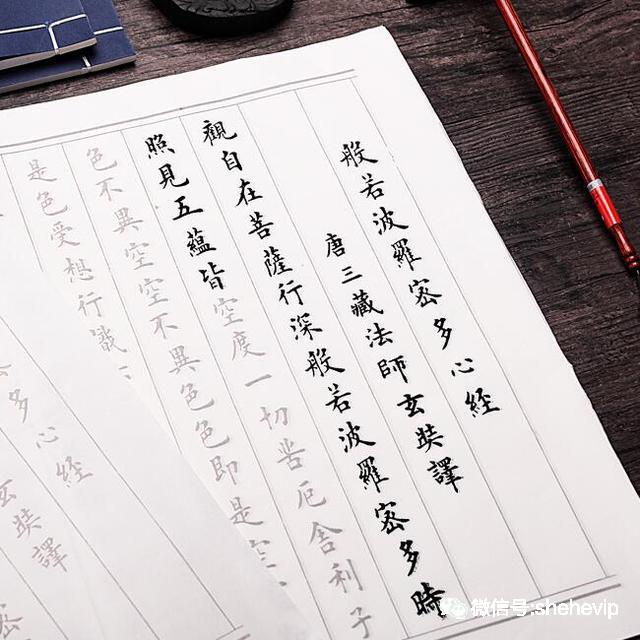 般若波羅密多心经
唐三藏法師玄奘譯
觀自在菩薩行深般若波羅密多時
照見五蘊皆空度一切苦厄舍利子
色不異空空不異色色即是空
是色受想行識
多心経
玄奘譯
密
微信号:shehevip